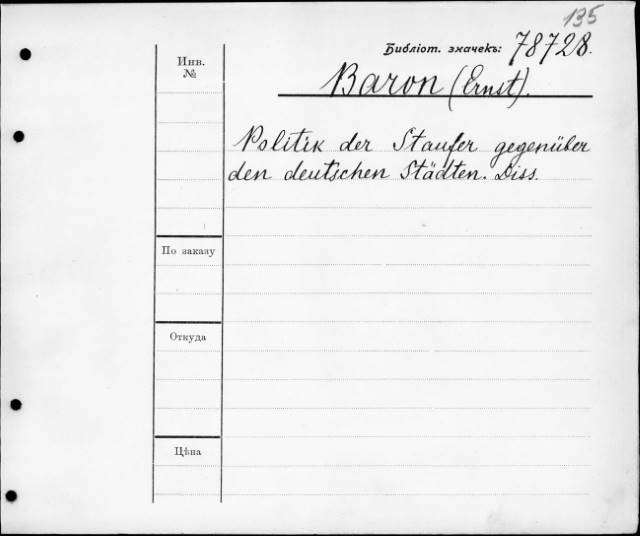 135
Библіот. значекъ: 78728.
Инв.
№
Baron (Ernst).
Politik der Staufer gegenüber
den deutschen Städten. Diss.
По заказу
Откуда
Цѣна